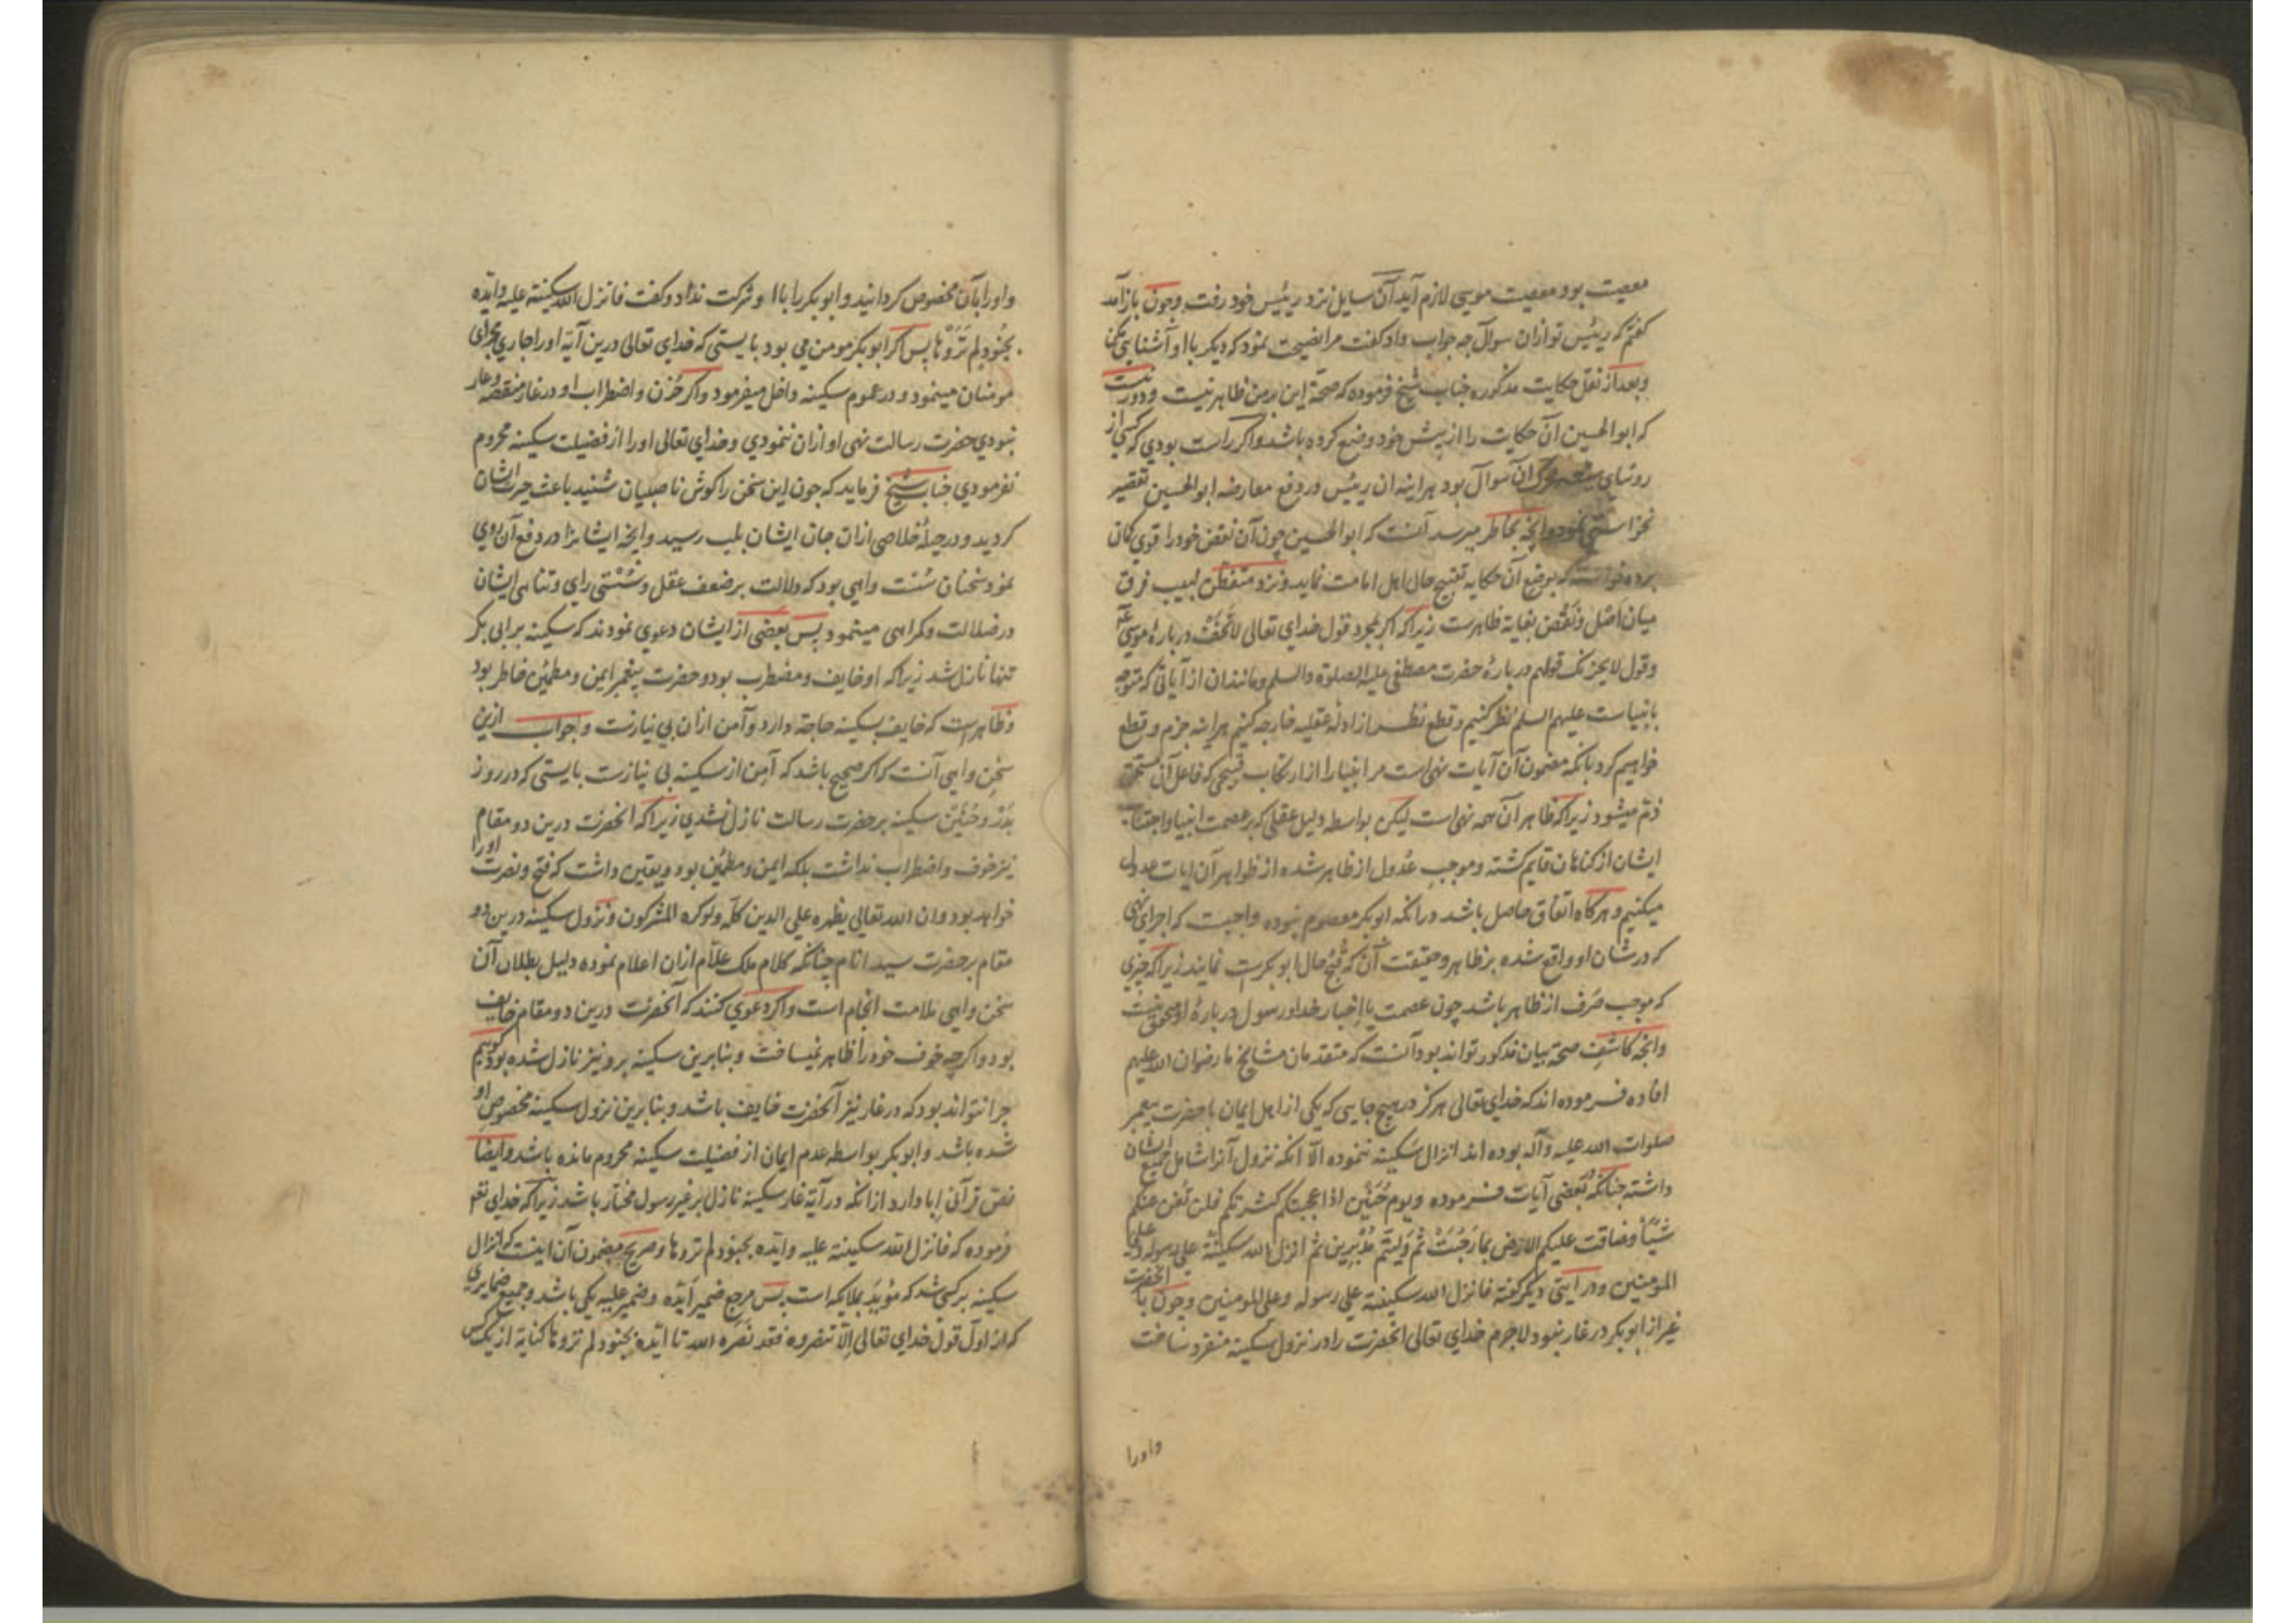 معصیت بود معصیت موسی لازم آید آن سایل نزد رئیس خود رفت وچون باز آمد
کفتم که رئیس تو ازان سوال چه جواب داد کفت مرا نصیحت نمود که دیکر باا و آشنایی مکن
وبعد از نقل حکایت مذکوره جناب شیخ فرموده که صحة این برمن ظاهر نیست ودور نیست
که ابوالحسین آن حکایت را از پیش خود وضع کرده باشد واکر راست بودی که کسی از
روسای شیعه آن سوال بود هراینه ان رئیس در دفع معارضه ابوالحسین تقصیر
نمودی وآنچه بخاطر میرسد آنست که ابوالحسین چون آن نقض خود را قوی کمان
برده خواسته که بوضع آن حکایه تقبیح حال اهل امامت نماید ونزد متفطن لبیب فرق
میان اصل ونقض بغایة ظاهرست زیراکه اکر بمجرد قول خدای تعالی لاتخف دربارهٔ موسی
وقول لایحزنک قولهم دربارهٔ حضرت مصطفی علیه الصلوة والسلم ومانندان از آیاتی که متوجه
بانبیاست علیهم السلم نظر کنیم وقطع نظر از ادلهٔ عقلیه خارجه کنیم هراینه جزم وقطع
خواهیم کرد بانکه مضمون آن آیات نهی است مر انبیا را از ارتکاب قبیحی که فاعل آن مستحق
ذم میشود زیراکه ظاهر آن همه نهی است لیکن بواسطه دلیل عقلی که بر عصمت انبیا واجتناب
ایشان از کناهان قایم کشته وموجب عدول از ظاهر شده از ظواهر آن ایات عدول
میکنیم وهرکاه اتفاق حاصل باشد درانکه ابوبکر معصوم نبوده واجبست که اجرای نهی
که درشان او واقع شده بر ظاهر وحقیقت آن که قبح حال ابوبکرست نمایند زیراکه چیزی
که موجب صرف از ظاهر باشد چون عصمت یا اخبار خدا ورسول دربارهٔ او متحقق نیست
وانچه کاشف صحة بیان مذکور تواند بود آنست که متقدمان مشایخ ما رضوان الله علیهم
افاده فرموده اند که خدای تعالی هرکز در هیچ جایی که یکی از اهل ایمان با حضرت پیغمبر
صلوات الله علیه وآله بوده اند انزال سکینه ننموده الا انکه نزول آنرا شامل جمیع ایشان
داشته چنانکه در بعضی آیات فرموده ویوم حنین اذا عجبتکم کثرتکم فلن تغن عنکم
شیئا وضاقت علیکم الارض بما رحبت ثم ولیتم مدبرین ثم انزل الله سکینته علی رسوله وعلی
المومنین ودر آیتی دیکر کفته فانزل الله سکینته علی رسوله وعلی المومنین وچون با آنحضرت
غیر از ابوبکر در غار نبود لاجرم خدای تعالی انحضرت را در نزول سکینه منفرد ساخت
واورا
واورا بآن مخصوص کردانید وابوبکر را باا و شرکت نداد وکفت فانزل الله سکینته علیه وایده
بجنود لم تروها پس اکر ابوبکر مومن می بود بایستی که خدای تعالی درین آیة اورا جاری مجرای
مومنان مینمود ودر عموم سکینه داخل میفرمود واکر حزن واضطراب او در غار منقصة وعار
نبودی حضرت رسالت نهی او ازان ننمودی وخدای تعالی اورا از فضیلت سکینه محروم
نفرمودی جناب شیخ فرماید که چون این سخن را کوش ناصبیان شنید باعث حیرت ایشان
کردید ودر حیلهٔ خلاصی ازان جان ایشان بلب رسید وانچه ایشانرا در دفع آن روی
نمود سخنان سست واهی بود که دلالت بر ضعف عقل وسستی رای وتناهی ایشان
در ضلالت وکمراهی مینمود پس بعضی از ایشان دعوی نمودند که سکینه بر ابی بکر
تنها نازل شد زیراکه او خایف ومضطرب بود وحضرت پیغمبر ایمن ومطمئن خاطر بود
وظاهرست که خایف بسکینه حاجة دارد وآمن ازان بی نیازست وجواب ازین
سخن واهی آنست که اکر صحیح باشد که آمن از سکینه بی نیازست بایستی که در روز
بدر وحنین سکینه بر حضرت رسالت نازل نشدی زیراکه انحضرت درین دو مقام
نیز خوف واضطراب نداشت بلکه ایمن ومطمئن بود ویقین داشت که فتح ونصرت اورا
خواهد بود وان الله تعالی یظهره علی الدین کله ولوکره المشرکون ونزول سکینه درین دو
مقام بر حضرت سید انام چنانکه کلام ملک علام ازان اعلام نموده دلیل بطلان آن
سخن واهی ملامت انجام است واکر دعوی کنند که آنحضرت درین دو مقام خایف
بود واکرچه خوف خود را ظاهر نمیساخت وبنابرین سکینه برو نیز نازل شده بود کوییم
چرا نتواند بود که در غار نیز آنحضرت خایف باشد وبنابرین نزول سکینه مخصوص او
شده باشد وابوبکر بواسطه عدم ایمان از فضیلت سکینه محروم مانده باشد وایضا
نص قرآنی ابا دارد ازانکه در آیة غار سکینه نازل بر غیر رسول مختار باشد زیراکه خدای تعه
فرموده که فانزل الله سکینته علیه وایده بجنود لم تروها وصریح مضمون آن اینست که انزال
سکینه بر کسی شد که مؤید بملایکه است پس مرجع ضمیر ایده وضمیر علیه یکی باشد وجمیع ضمایری
که از اول قول خدای تعالی الا تنصروه فقد نصره الله تا ایده بجنود لم تروها کنایة از یک کس